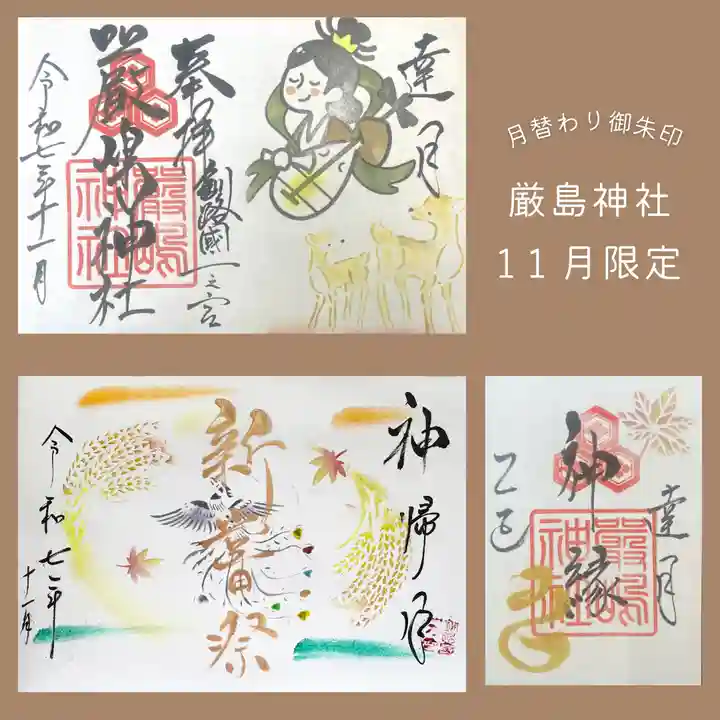 月替わり御朱印
厳島神社
11月限定
達月
奉拝
釧路國一之宮
厳島神社
嚴嶋神社
令和七年十一月
神帰月
新嘗祭
令和七年
十一月
達月
神縁
嚴嶋神社
乙巳